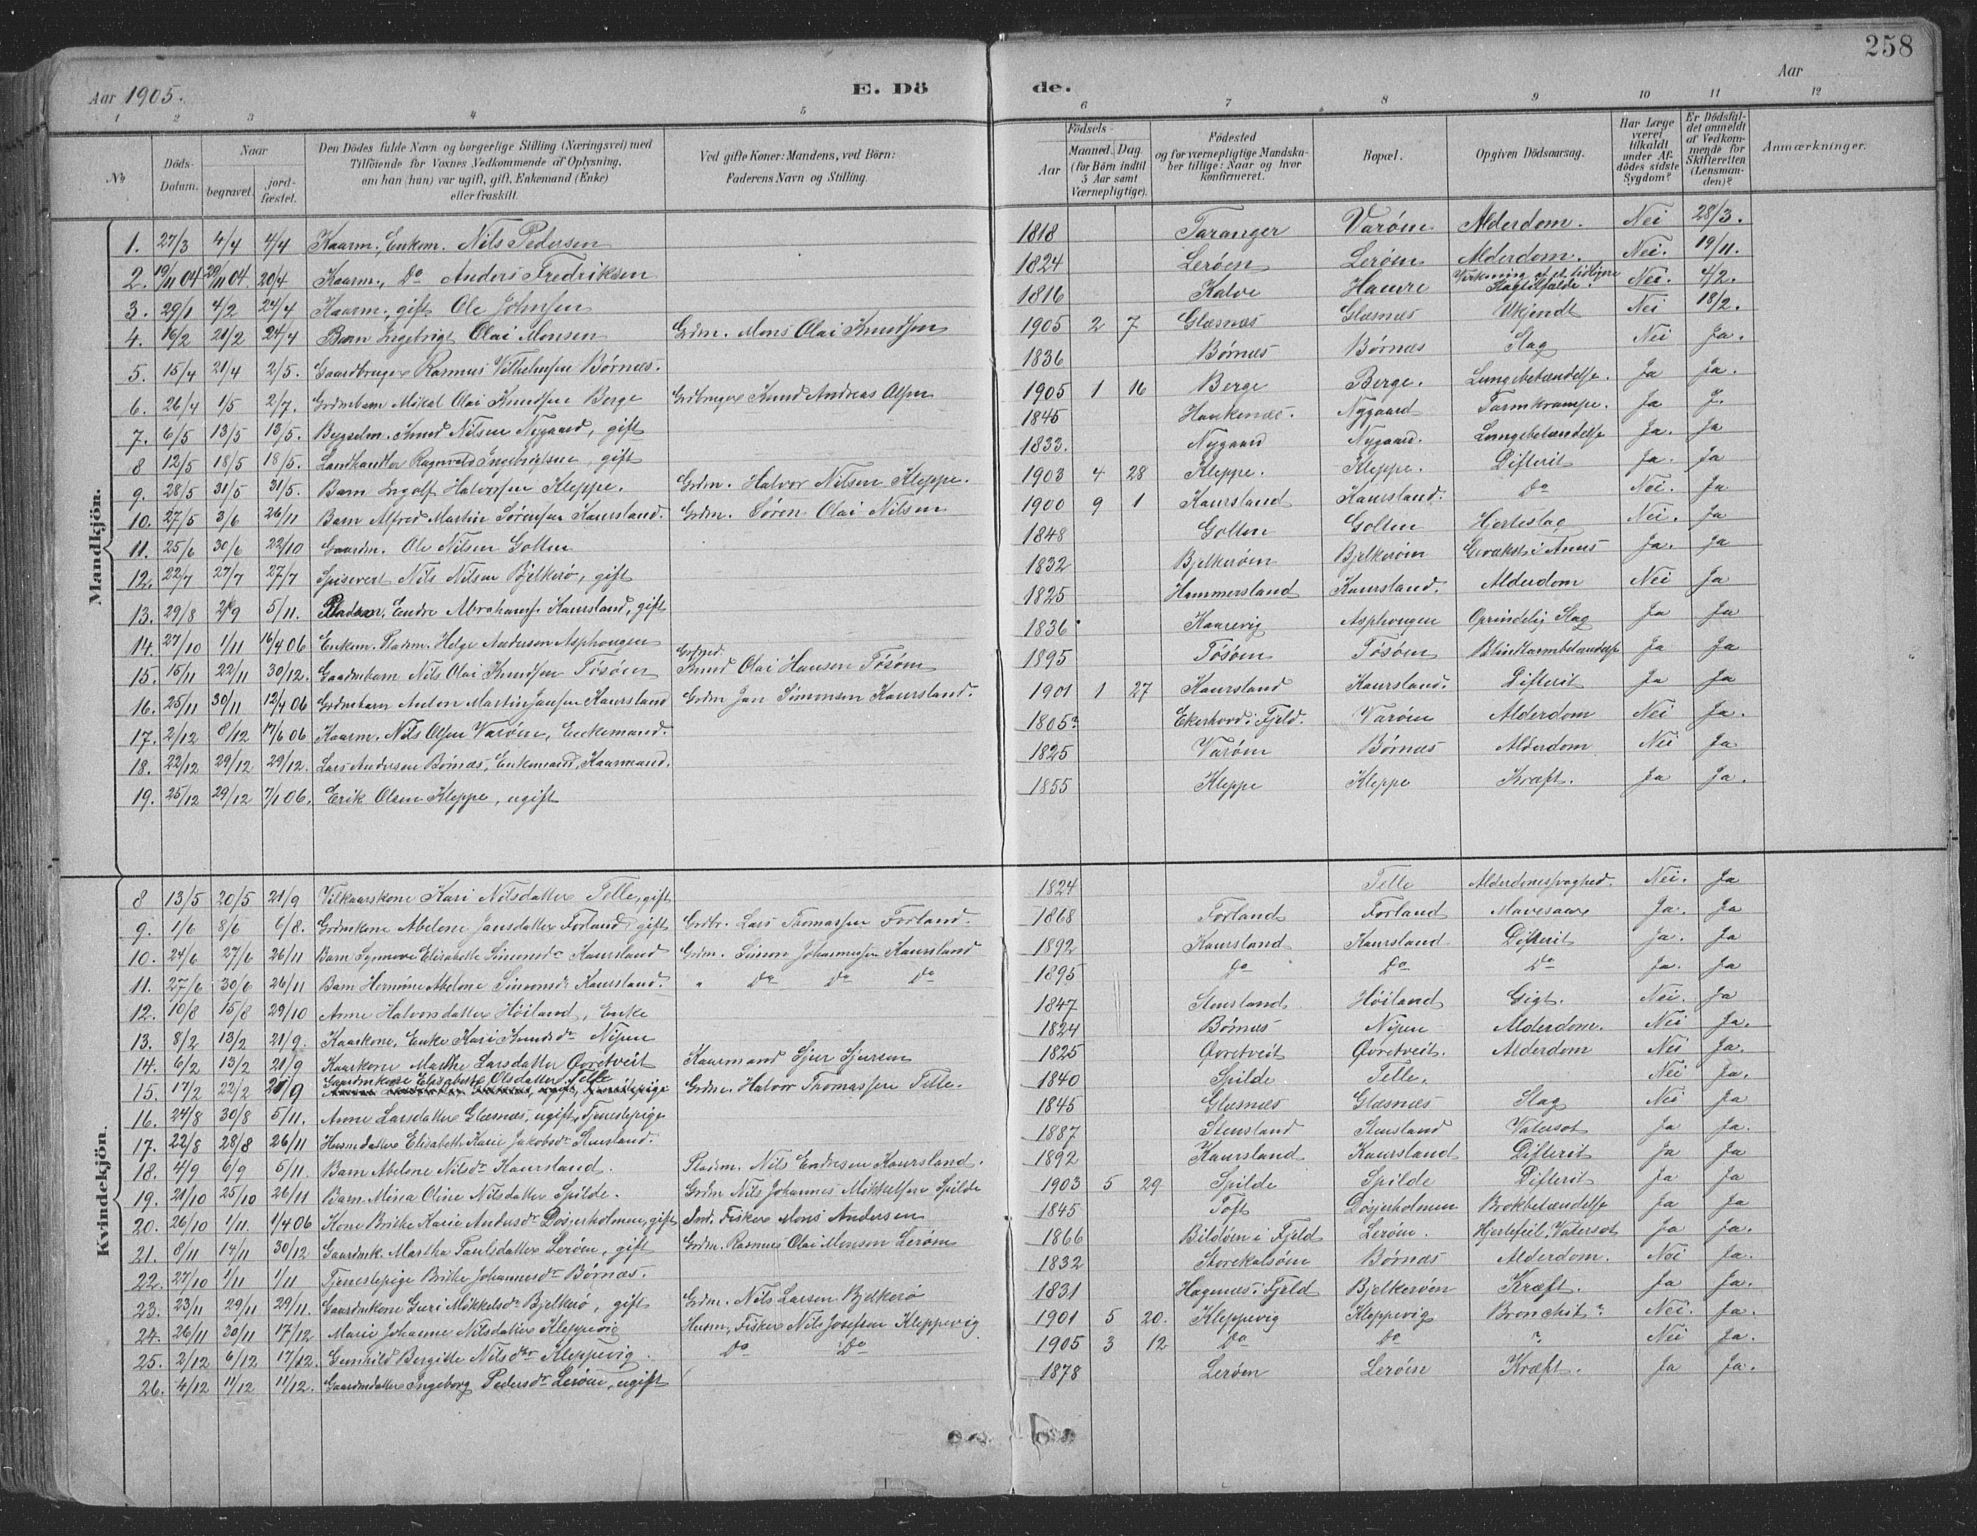 258
Aar 1905. E. Dö de. Aar
1 2 3 4 5 6 7 8 9 10 11 12
No
Døds-Datum.
Naar
begravet.
jord-fæstet.
Den Dödes fulde Navn og borgerlige Stilling (Næringsvei) med
Tilföiende for Voxnes Vedkommende af Oplysning,
om han (hun) var ugift, gift, Enkemand (Enke)
eller fraskilt.
Ved gifte Koner: Mandens, ved Börn:
Faderens Navn og Stilling.
Födsels-
Aar
Maaned. Dag.
(for Börn indtil
5 Aar samt
Værnepligtige).
Födested
og for værnepligtige Mandska-
ber tillige: Naar og hvor
konfirmeret.
Bopæl.
Opgiven Dödsaarsag.
Har Læge
været
tilkaldt
under Af-
dödes sidste
Sygdom?
Er Dödsfal-
det anmeldt
af Vedkom-
mende for
Skifteretten
(Lensman-
den)?
Anmærkninger.
Mandkjön.
1. 27/3 4/4 4/4 Kaarm., Enkem. Nils Pedersen 1818 Taranger Varöen Alderdom. Nei 28/3.
2. 19/11 04 29/11 04 20/4 Kaarm., Do Anders Fredriksen 1824 Leröen Leröen Alderdom. Nei. 19/11.
3. 29/1 4/2 24/4 Kaarm., gift Ole Johnsen 1816 Kalve Haavre Virkning af et tidligere Slagtilfælde. Nei. 4/2.
4. 16/2 21/2 24/4 Barn Ingebrigt Olai Monsen Grdm. Mons Olai Knudsen 1905 2 7 Glæsnæs Glæsnæs Ukjendt Nei 18/2.
5. 15/4 21/4 2/5. Gaardbruger Rasmus Vilhelmsen Börnæs. 1836 Börnæs Börnæs Slag Nei Ja.
6. 26/4 1/5 2/7. Grdmbarn Mikal Olai Knudsen Berge Grdbruger Knud Andreas Olsen 1905 1 16 Berge Berge. Lungebetændelse. Ja Ja.
7. 6/5 13/5 13/5. Bygselm. Knud Nilsen Nygaard, gift 1845 Haukenæs. Nygaard Tarmkrampe. Ja J.
8 12/5 18/5 18/5. Landhandler Ragnvald Ingebrigtsen, gift 1833. Nygaard Nygaard. Lungebetændelse Ja. Ja.
9. 28/5 31/5 31/5. Barn Ingolf Halvorsen Kleppe. Grdm. Halvor Nilsen Kleppe. 1903 4 28 Kleppe. Kleppe. Difterit Ja. Ja
10. 27/5 3/6 26/11 Barn Alfred Martin Sörensen Kaursland. Grdm. Sören Olai Nilsen 1900 9 1 Kaursland Kaursland. Do Nei. Ja
11. 25/6 30/6 22/10 Gaardm. Ole Nilsen Golten 1848 Golten Golten Hjerteslag Nei. Ja
12. 22/7 27/7 27/7 Spisevert Nils Nilsen Bjelkerö, gift 1832 Bjelkeröen Bjelkeröen Gevækst i Anus Ja. Ja
13. 29/8 2/9 5/11. Pladsm. Endre Abrahamsen Kaursland, gift 1825 Hammersland Kaursland. Alderdom Nei Ja
14. 27/10 1/11 16/4 06 Enkem. Pladsm. Helge Andersen Asphougen 1836 Kaarevig Asphougen Oprindelig Slag Ja Ja
15. 15/11 22/11 30/12. Gaardmbarn Nils Olai Knudsen Tösöen Knud Olai Hansen Tösöen 1895 Tösöen Tösöen Blindtarmbetændelse Ja Ja
16. 25/11 30/11 12/4 06 Grdmbarn Anton Martin Jansen Kaursland Grdm Jan Simonsen Kaursland. 1901 1 27 Kaursland Kaursland. Difterit Ja Ja
17. 2/12 8/12 17/6 06 Kaarm. Nils Olsen Varöen, Enkemand. 1805? Ekerhovd i Fjeld. Varöen Alderdom Nei Ja.
18. 22/12 29/12 29/12. Lars Andersen Börnæs, Enkemand, Kaarmand. 1825 Varöen Börnæs Alderdom Nei Ja.
19. 25/12 29/12 7/1 06. Erik Olsen Kleppe, ugift 1855 Kleppe Kleppe Kræft. Ja Ja.
Kvindekjön.
8 13/5 20/5 21/9 Vilkaarskone Kari Nilsdatter Telle, gift 1824 Telle Alderdomssvaghed. Nei. Ja
9. 1/6 8/6 6/8. Grdmkone Abelone Jansdatter Forland, gift Grdbr. Lars Thomassen Forland. 1868 Forland Forland Mavesaar Ja. Ja
10. 24/6 27/6 26/11 Barn Synneve Elisabeth Simonsdr Kaursland Grdm. Simon Johannessen Kaursland 1892 Kaursland Kaursland Difterit Ja. Ja
11. 27/6 30/6 26/11 Barn Hermine Abelone Simonsdr Kaursland. " Do Do Do 1895 Do Do Do Ja. Ja
12. 10/8 15/8 29/10 Anne Halvorsdatter Höiland, Enke 1847 Stensland Höiland Gigt. Nei. Ja
13. 8/2 13/2 21/9. Kaarkone, Enke Kari Knudsdr Nipen 1824 Börnæs Nipen Alderdom. Nei Ja.
14. 6/2 13/2 21/9 Kaarkone Marthe Larsdatter Övretveit Kaarmand Sjur Sjursen 1825 Övretveit Övretveit. Alderdom Nei Ja.
15. 17/2 22/2 21/9 Gaardmkone Elisabeth Olsdatter Telle Grdm. Halvor Thomassen Telle. 1840 Spilde Telle. Nei Ja.
16. 24/8 30/8 5/11. Anne Larsdatter Glæsnæs, ugift, Tjenestepige 1845 Glæsnæs Glæsnæs Slag Nei Ja
17. 22/8 28/8 26/11 Husmdatter Elisabeth Karie Jakobsdr Stensland. 1887 Stensland Stensland Vatersot Ja Ja.
18. 4/9 6/9 5/11 Barn Abelone Nilsdr Kaursland. Pladsm. Nils Endresen Kaursland. 1892 Kaursland Kaursland Difterit Ja Ja
19. 21/10 25/10 26/11 Barn Mina Oline Nilsdatter Spilde. Grdm Nils Johannes Mikkelsen Spilde 1903 5 29 Spilde Spilde Difterit Ja Ja
20. 26/10 1/11. 1/4 06 Kone Brithe Karie Andersdr Dösjerholmen, gift Ind. Fisker Mons Andersen 1845 Toft Dösjerholmen Brokbetændelse Ja Ja
21. 8/11 14/11 30/12 Gaardmk. Martha Paulsdatter Leröen, gift Grdm. Rasmus Olai Monsen Leröen 1866 Bildöen i Fjeld Leröen. Hjertefeil, Vatersot Ja Ja.
22. 27/10 1/11 1/11 Tjenestepige Brithe Johannesdr Börnæs. 1832 Storekalsöen Börnæs Alderdom. Nei Ja.
23. 23/11 29/11 29/11. Gaardmkone Guri Mikkelsdr Bjelkerö, gift Grdm. Nils Larsen Bjelkerö 1831 Hagenæs i Fjeld Bjelkeröen Kræft. Ja Ja
24. 26/11 30/11 17/12 Marie Johanne Nilsdatter Kleppevig Husm., Fisker Nils Josefsen Kleppevig 1901 5 20. Kleppevig Kleppevig Bronchit? Nei. Ja.
25. 2/12 6/12 17/12. Gunhild Bergitte Nilsdtr Kleppevig. Do Do 1905 3 12 Do Do ? Nei Ja.
26. 4/12 11/12 11/12. Gaardmdatter Ingeborg Pedersdr Leröen, ugift 1878 Leröen Leröen Kræft. Ja Ja.